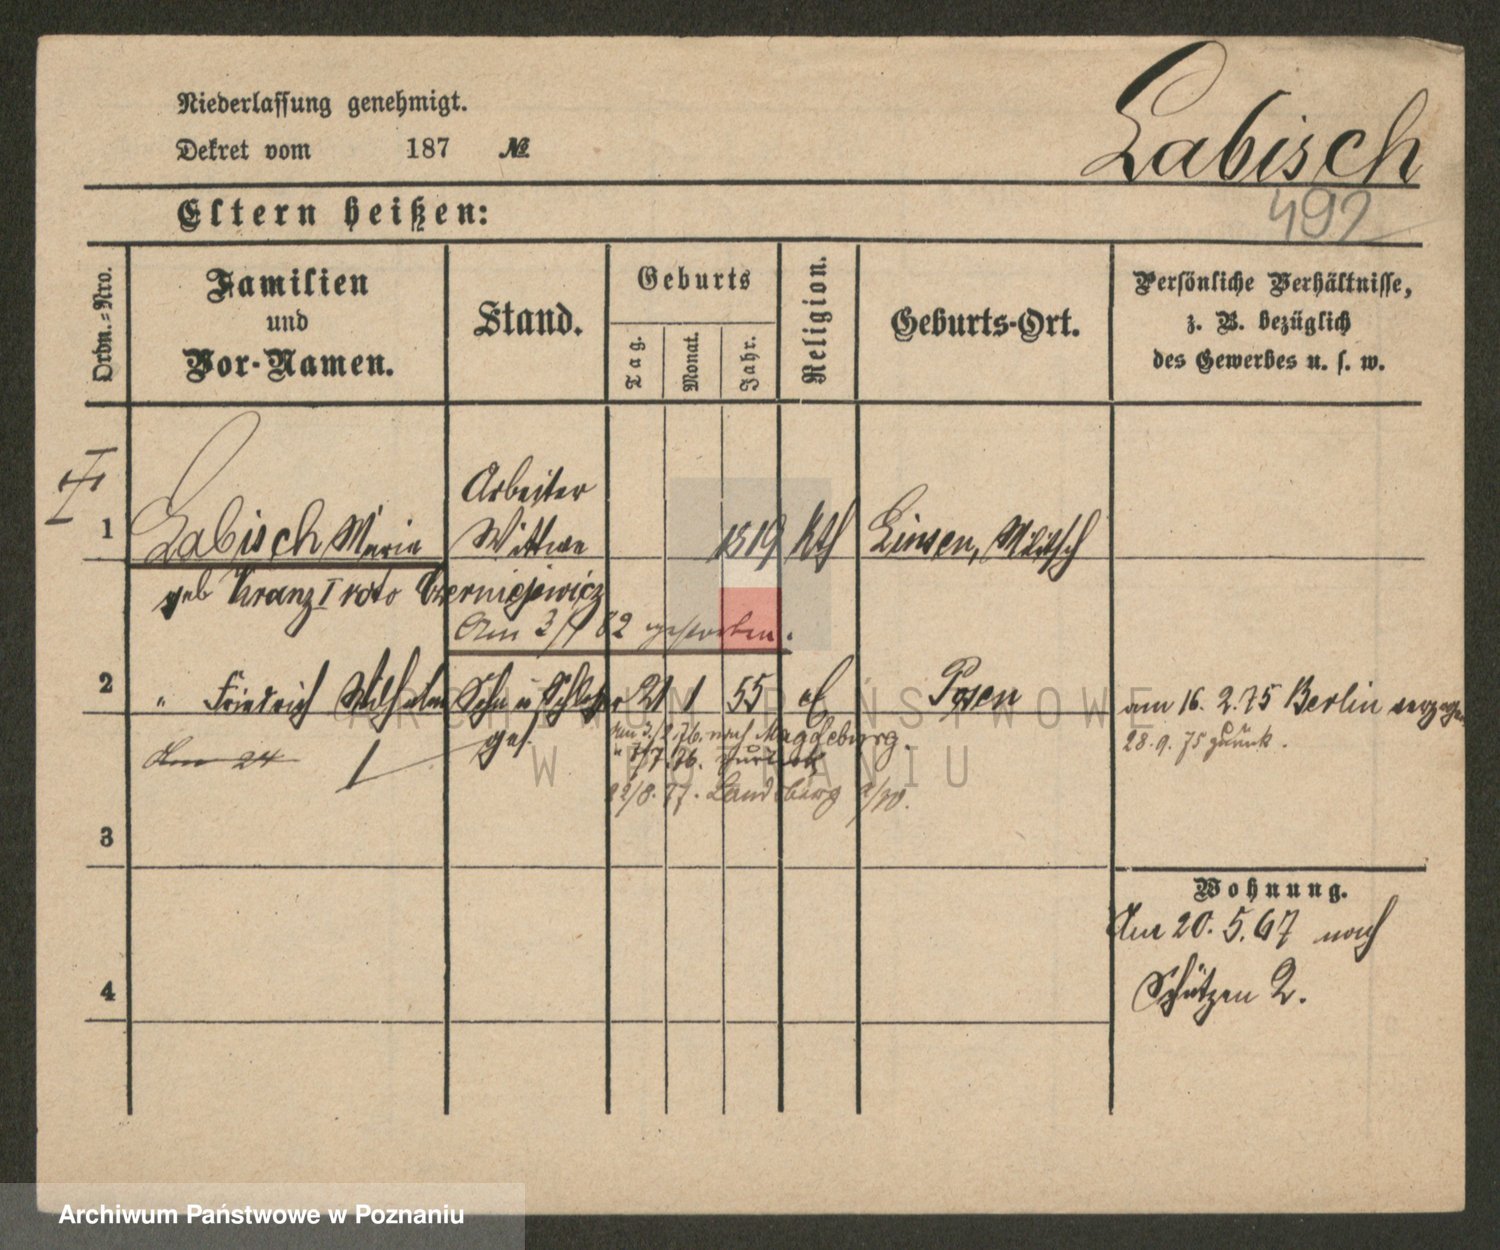 Niederlassung genehmigt.
Dekret vom 187 №
Labisch
492
Eltern heißen:
Ordn.-Nro.
Familien
und
Vor-Namen.
Stand.
Geburts
Tag.
Monat.
Jahr.
Religion.
Geburts-Ort.
Persönliche Verhältnisse,
z. B. bezüglich
des Gewerbes u. s. w.
1
Labisch Maria
Arbeiter
Wittwe
1819
Kth
geb Kranz I voto
Am 3/ 82 gestorben.
2
" Friedrich Wilhelm
Sohn u Schlosser
ges.
21 1 55
Posen
am 16. 2. 75 Berlin verzogen
28. 9. 75 zurück.
Am 24
nach Magdeburg.
76. zurück
22/8. 77. Landsberg a/W.
3
Wohnung.
Am 20. 5. 67 nach
Schützen 2.
4
ARCHIWUM PAŃSTWOWE
W POZNANIU
Archiwum Państwowe w Poznaniu